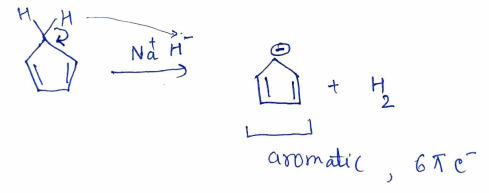 H H
Na⁺ H⁻
⊖
+ H₂
aromatic , 6π e⁻